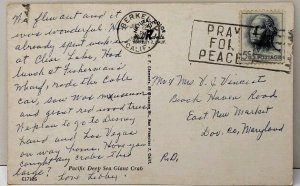 We flew out and it
was wonderful. We
already spent week
at Clear Lake, Had
lunch at Fisherman's
Wharf, rode the Cable
car, saw wax museum
and giant red wood trees
We plan to go to Disney
land and Las Vegas
on way home. How you
caught any crabs this
large?
Love Libby.
Pacific Deep Sea Giant Crab
BERKELEY
CALIF.
PRAY
FOR
PEACE
5¢ U.S. POSTAGE
Mr & Mrs V. J. Vincent
Beach Haven Road
East New Market
Dor. Co, Maryland